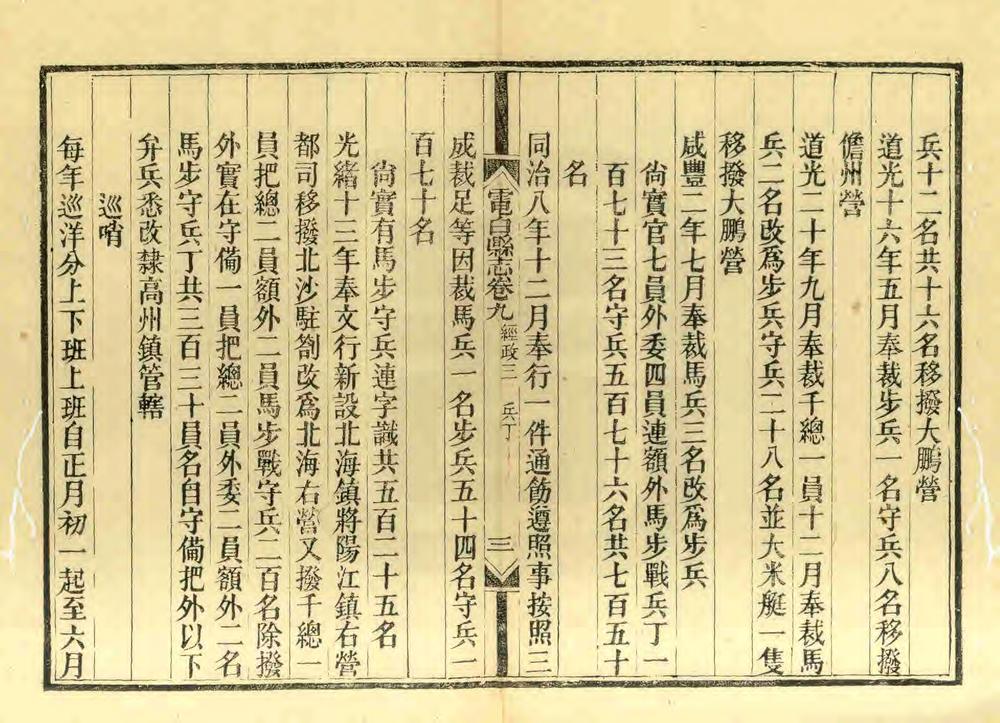 兵十二名共十六名移撥大鵬營
道光十六年五月奉裁步兵一名守兵八名移撥
儋州營
道光二十年九月奉裁千總一員十二月奉裁馬
兵二名改爲步兵守兵二十八名並大米艇一隻
移撥大鵬營
咸豐二年七月奉裁馬兵三名改爲步兵
尙實官七員外委四員連額外馬步戰兵丁一
百七十三名守兵五百七十六名共七百五十
名
同治八年十二月奉行一件通飭遵照事按照三
電白縣志卷九 經政三 兵丁 三
成裁足等因裁馬兵一名步兵五十四名守兵一
百七十名
尙實有馬步守兵連字識共五百二十五名
光緒十三年奉文行新設北海鎮將陽江鎮右營
都司移撥北沙駐劄改爲北海右營又撥千總一
員把總二員額外二員馬步戰守兵二百名除撥
外實在守備一員把總二員外委二員額外二名
馬步守兵丁共三百三十員名自守備把外以下
弁兵悉改隸高州鎮管轄
巡哨
每年巡洋分上下班上班自正月初一起至六月